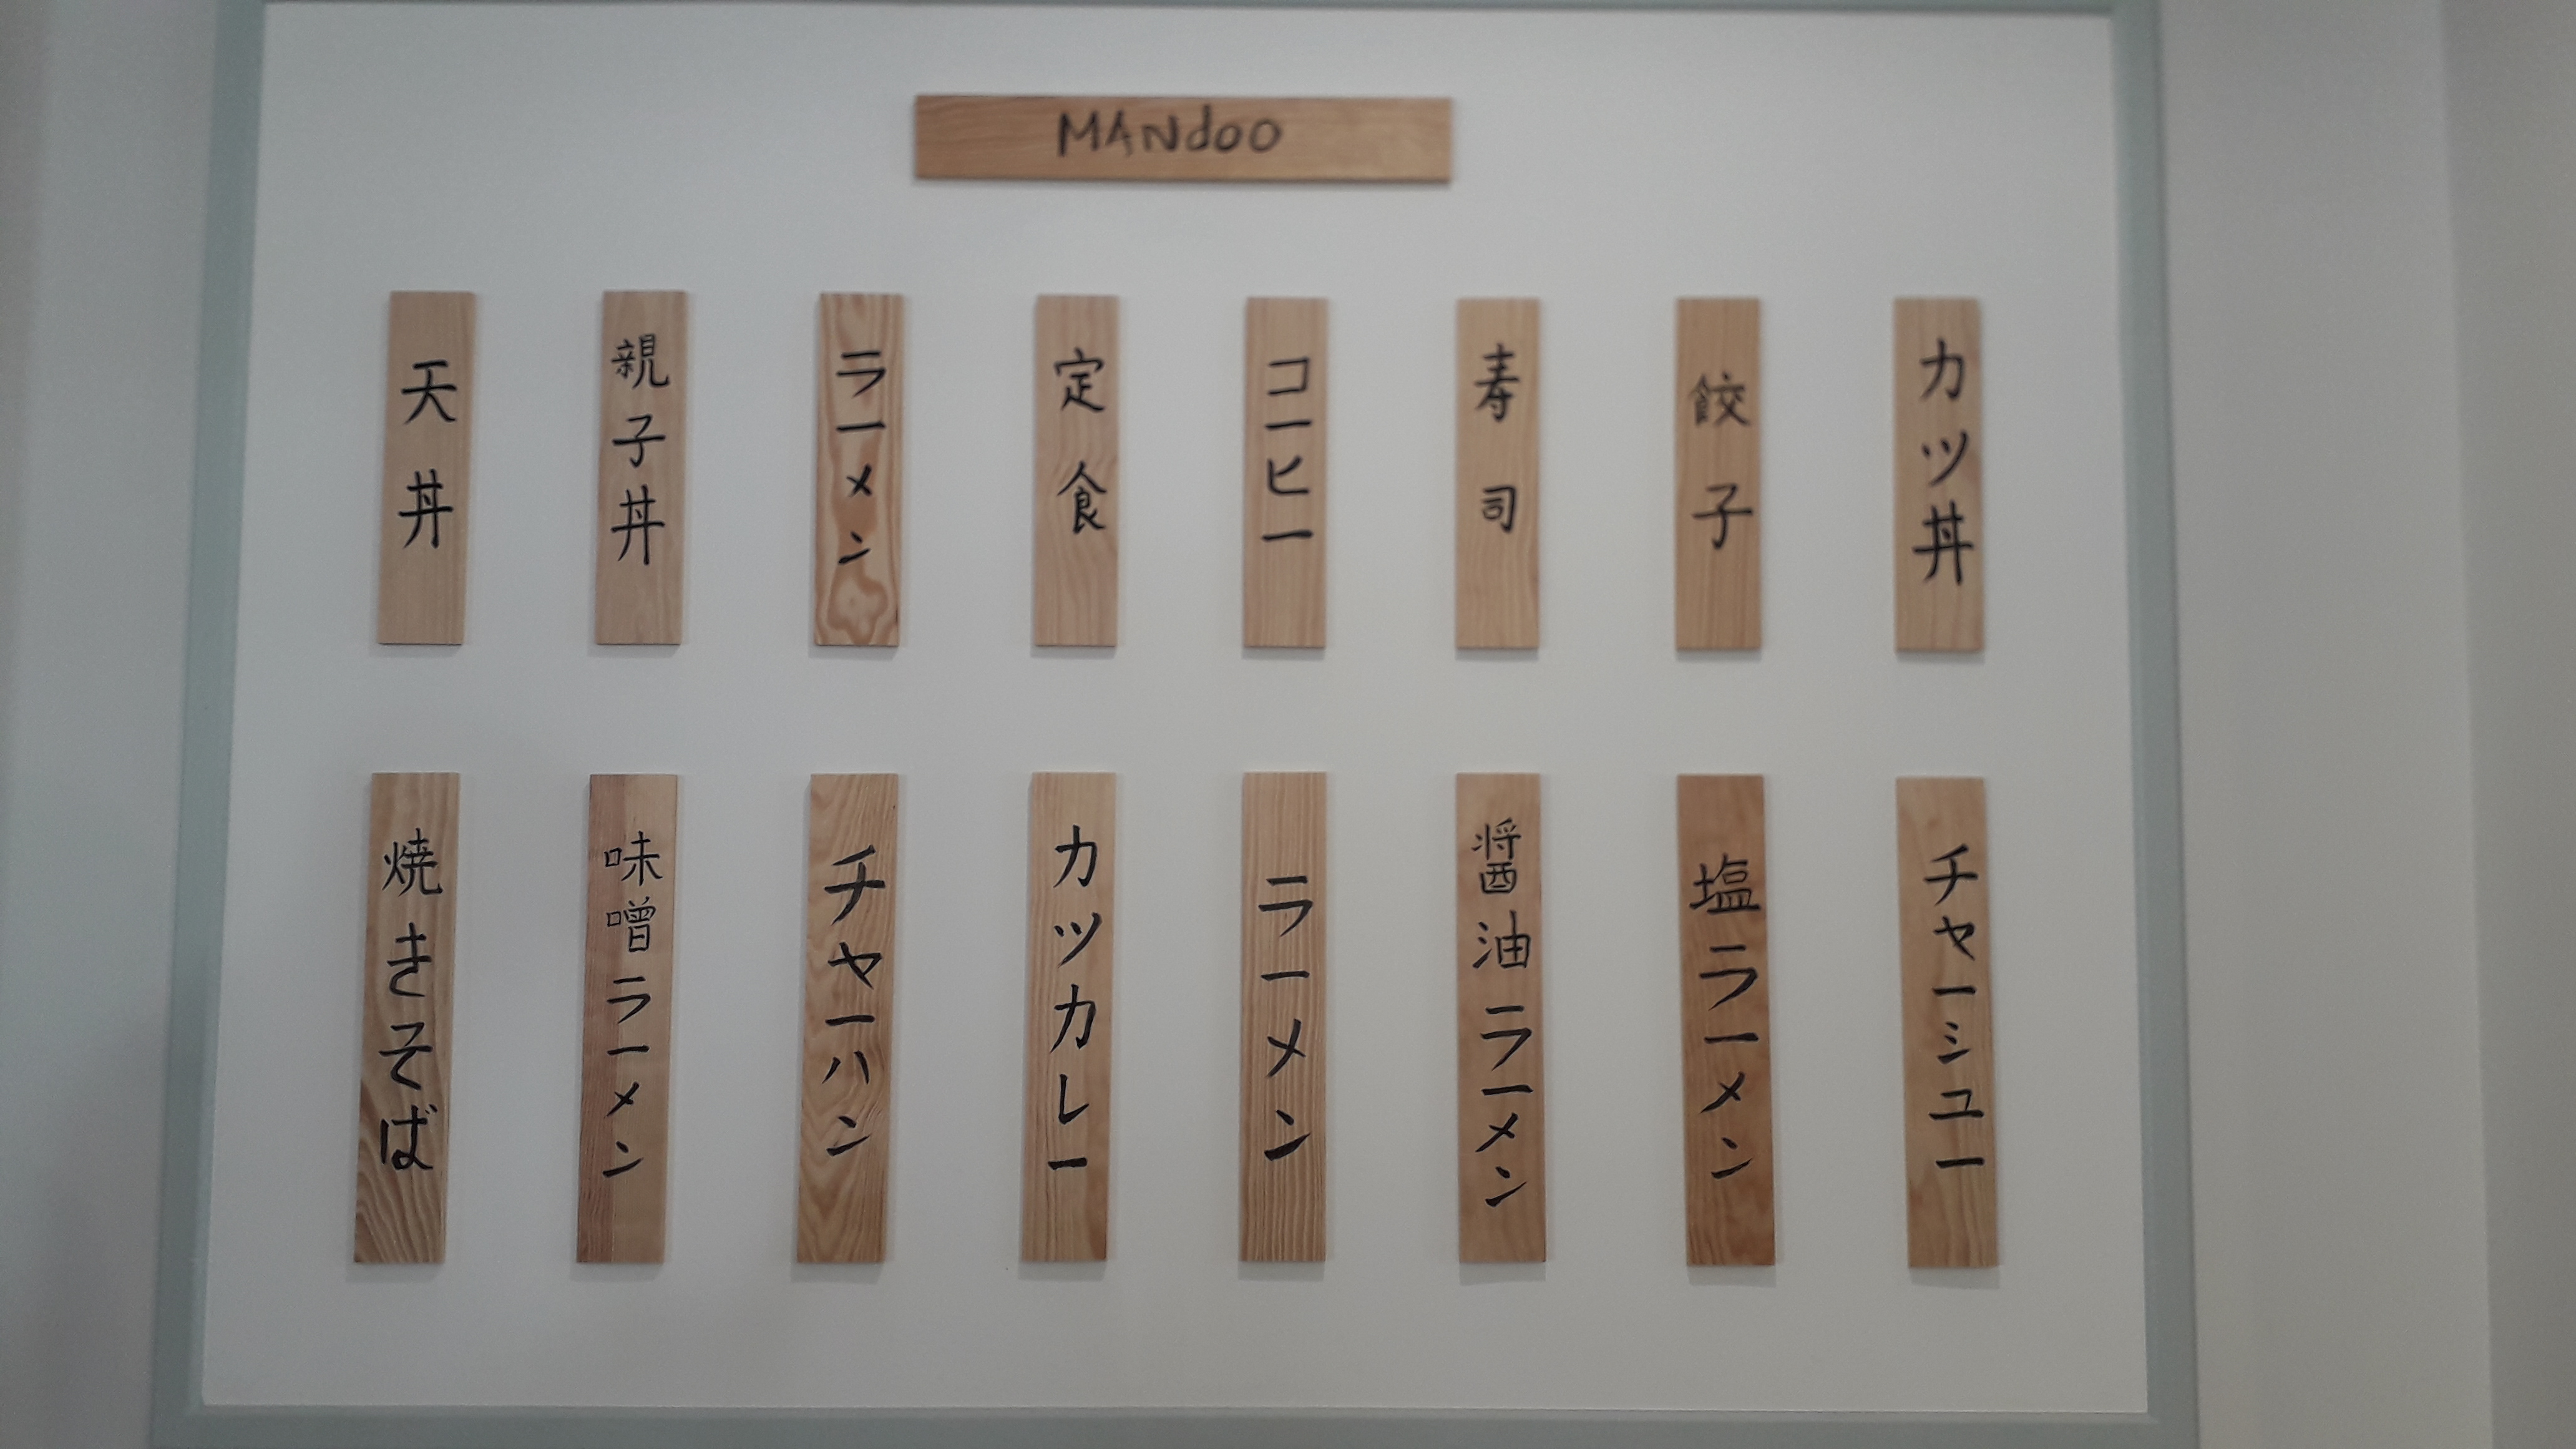 MANdoo
天丼
親子丼
ラーメン
定食
コーヒー
寿司
餃子
カツ丼
焼きそば
味噌ラーメン
チャーハン
カツカレー
ラーメン
醤油ラーメン
塩ラーメン
チャーシュー